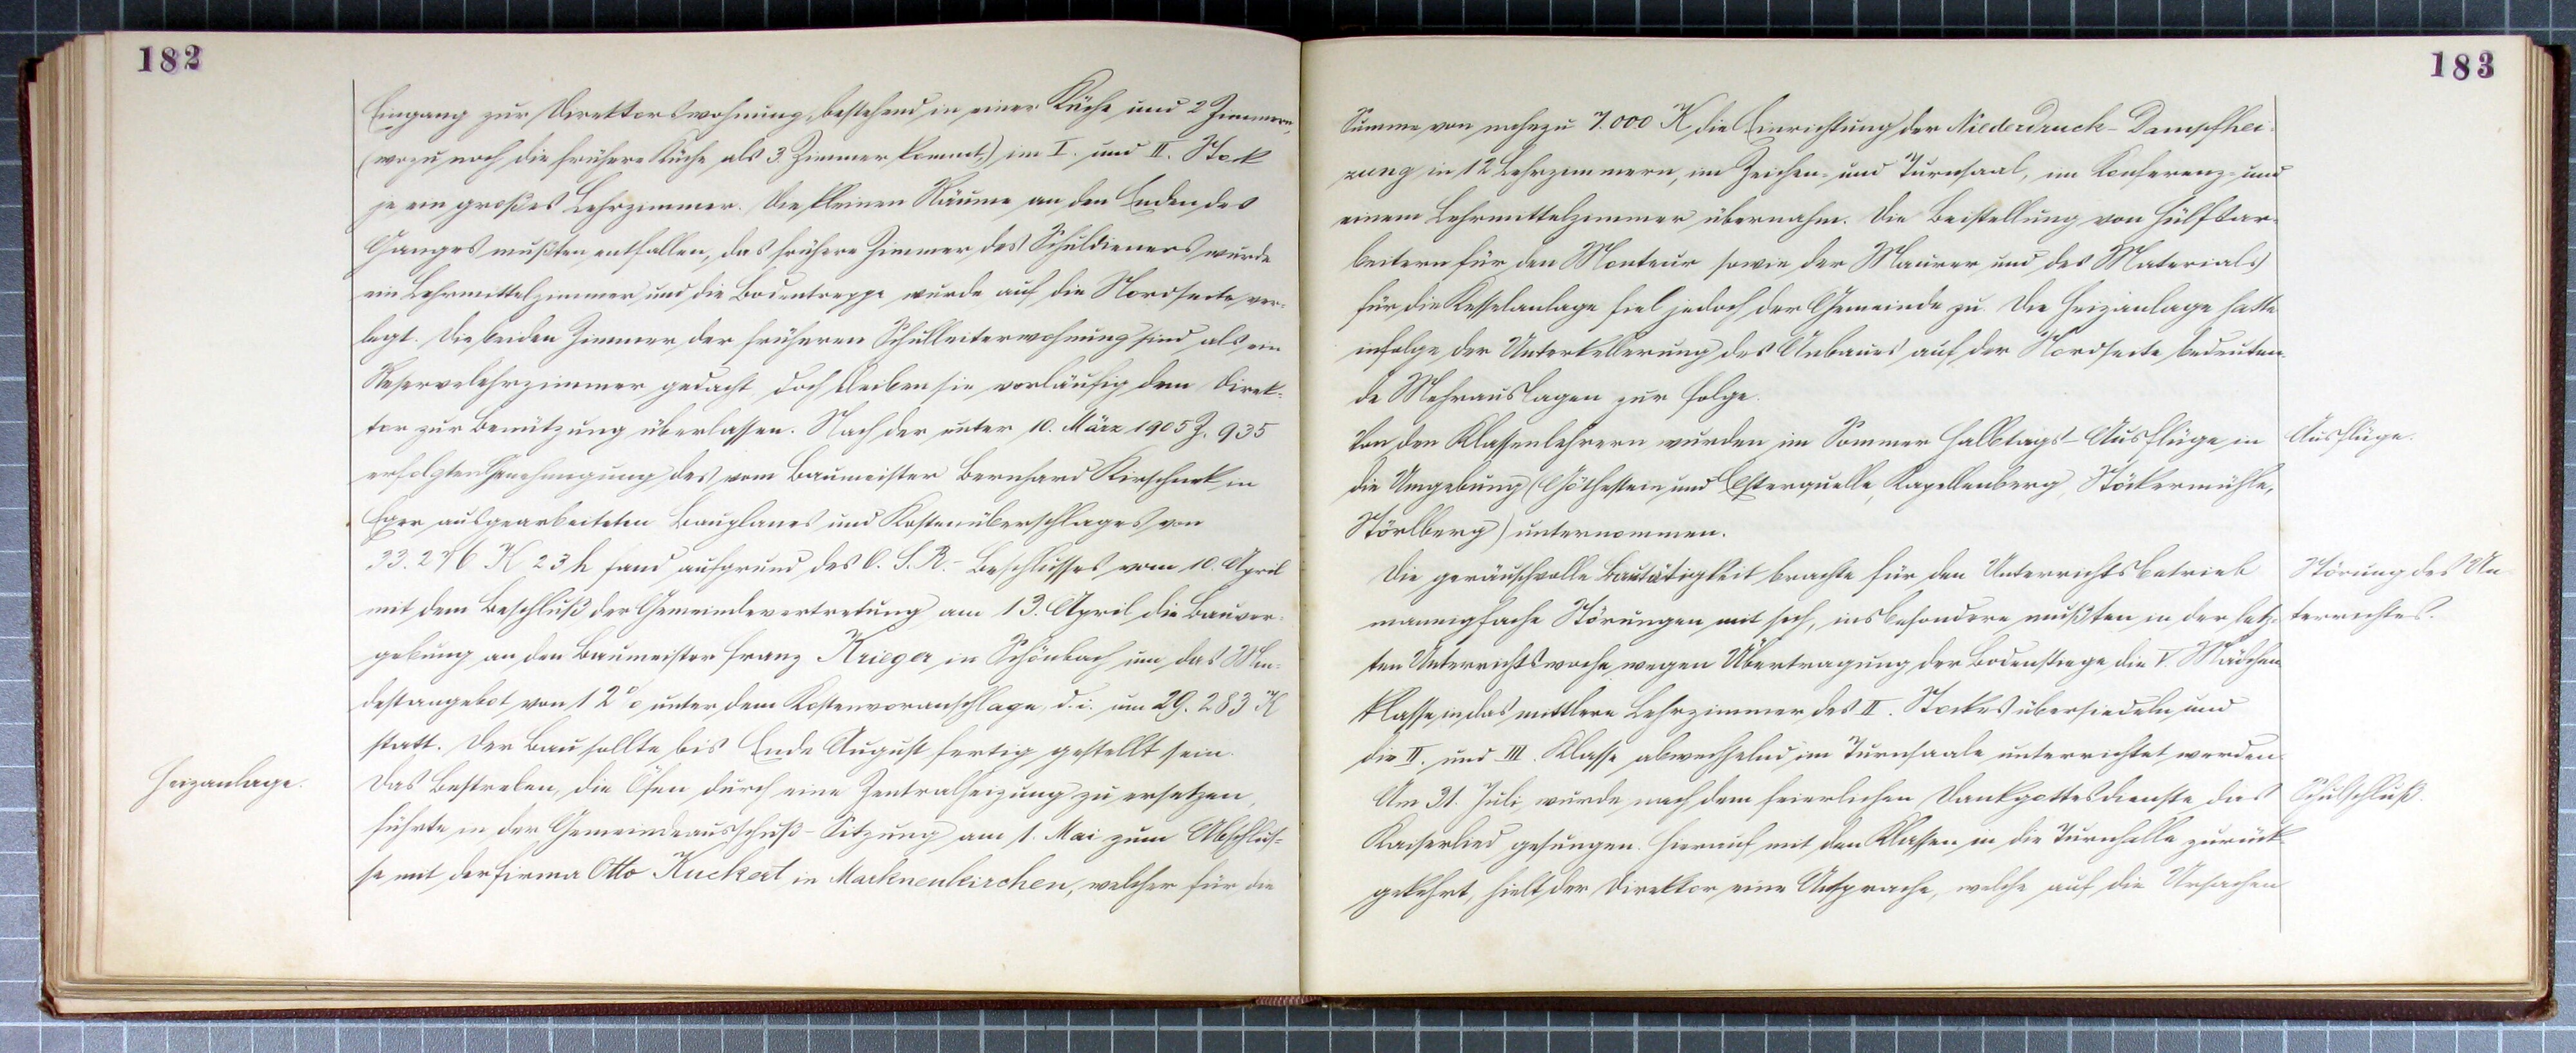 182
Eingang zur Direktorswohnung, bestehend in einer Küche und 2 Zimmern,
(wozu noch die frühere Küche als 3. Zimmer kommt) im I. und II. Stock
je ein großes Lehrzimmer. Die kleinen Räume an den Enden des
Ganges mußten entfallen, das frühere Zimmer des Schuldieners wurde
ein Lehrmittelzimmer und die Bodentreppe wurde auf die Nordseite ver-
legt. Die beiden Zimmer der früheren Schulleiterwohnung sind als ein
Reservelehrzimmer gedacht, doch bleiben sie vorläufig dem Direk-
tor zur Benützung überlassen. Nach der unter 10. März 1905 Z. 935
erfolgten Genehmigung des vom Baumeister Bernhard Kirschnek in
Eger ausgearbeiteten Bauplanes und Kostenüberschlages von
33.276 K 23 h fand aufgrund des O. S. R.- Beschlusses vom 10. April
mit dem Beschluß der Gemeindevertretung am 13. April die Bauver-
gebung an den Baumeister Franz Krieger in Schönbach um das Min-
destangebot von 12% unter dem Kostenvoranschlage, d. i. um 29.283 K
statt. Der Bau sollte bis Ende August fertig gestellt sein.
Heizanlage.
Das Bestreben, die Öfen durch eine Zentralheizung zu ersetzen,
führte in der Gemeindeausschuß-Sitzung am 1. Mai zum Abschlus-
se mit der Firma Otto Kuckert in Markneukirchen, welcher für die
183
Summe von nahezu 7.000 K die Einrichtung der Niederdruck-Dampfhei-
zung in 12 Lehrzimmern, im Zeichen- und Turnsaal, im Konferenz- und
einem Lehrmittelzimmer übernahm. Die Beistellung von Hülfsar-
beitern für den Monteur sowie der Maurer und des Materials
für die Kesselanlage fiel jedoch der Gemeinde zu. Die Heizanlage hatte
infolge der Unterkellerung des Anbaues auf der Nordseite bedeuten-
de Mehrauslagen zur Folge.
Von den Klassenlehrern wurden im Sommer Halbtags-Ausflüge in
Ausflüge.
die Umgebung (Göthestein und Elsterquelle, Kapellenberg, Stöckermühle,
Störlberg) unternommen.
Die geräuschvolle Bautätigkeit brachte für den Unterrichtsbetrieb
Störung des Un-
mannigfache Störungen mit sich, insbesondere mußten in der letz-
terrichtes.
ten Unterrichtswoche wegen Übertragung der Bodenstiege die V. Mädchen
klasse in das mittlere Lehrzimmer des II. Stockes übersiedeln und
die II. und III. Klasse abwechselnd im Turnsaale unterrichtet werden.
Am 31. Juli wurde nach dem feierlichen Dankgottesdienste das
Schulschluß.
Kaiserlied gesungen. Hierauf mit den Klassen in die Turnhalle zurück-
gekehrt, hielt der Direktor eine Ansprache, welche auf die Ursachen